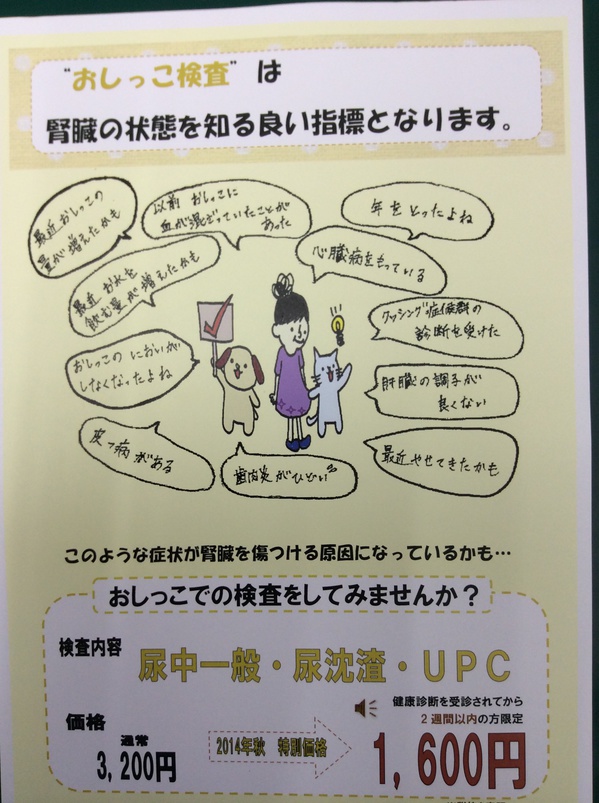 "おしっこ検査" は
腎臓の状態を知る良い指標となります。
最近おしっこの
量が増えたかも
以前 おしっこに
血が混ざっていたことが
あった
年をとったよね
最近 お水を
飲む量が増えたかも
心臓病をもっている
クッシング症候群の
診断を受けた
おしっこの においが
しなくなったよね
肝臓の調子が
良くない
皮フ病がある
歯肉炎がひどい
最近やせてきたかも
このような症状が腎臓を傷つける原因になっているかも…
おしっこでの検査をしてみませんか？
検査内容
尿中一般・尿沈渣・UPC
健康診断を受診されてから
2週間以内の方限定
価格
通常
3,200円
2014年秋 特別価格
1,600円